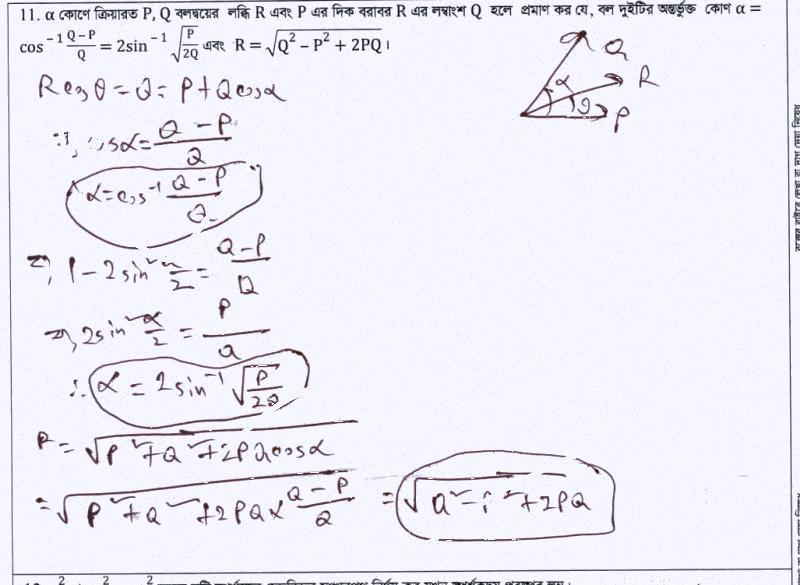 11. α কোণে ক্রিয়ারত P, Q বলদ্বয়ের লব্ধি R এবং P এর দিক বরাবর R এর লম্বাংশ Q হলে প্রমাণ কর যে, বল দুইটির অন্তর্ভুক্ত কোণ α =
cos⁻¹ (Q−P)/Q = 2sin⁻¹ √(P/2Q) এবং R = √(Q² − P² + 2PQ)।
Q
α
R
θ
P
R cos θ = Q = P + Q cos α
cos α = (Q − P)/Q
α = cos⁻¹ (Q − P)/Q
⇒, 1 − 2 sin² α/2 = (Q − P)/Q
⇒, 2 sin² α/2 = P/Q
∴ α = 2 sin⁻¹ √(P/2Q)
R = √(P² + Q² + 2PQ cos α)
= √(P² + Q² + 2PQ × (Q − P)/Q) = √(Q² − P² + 2PQ)